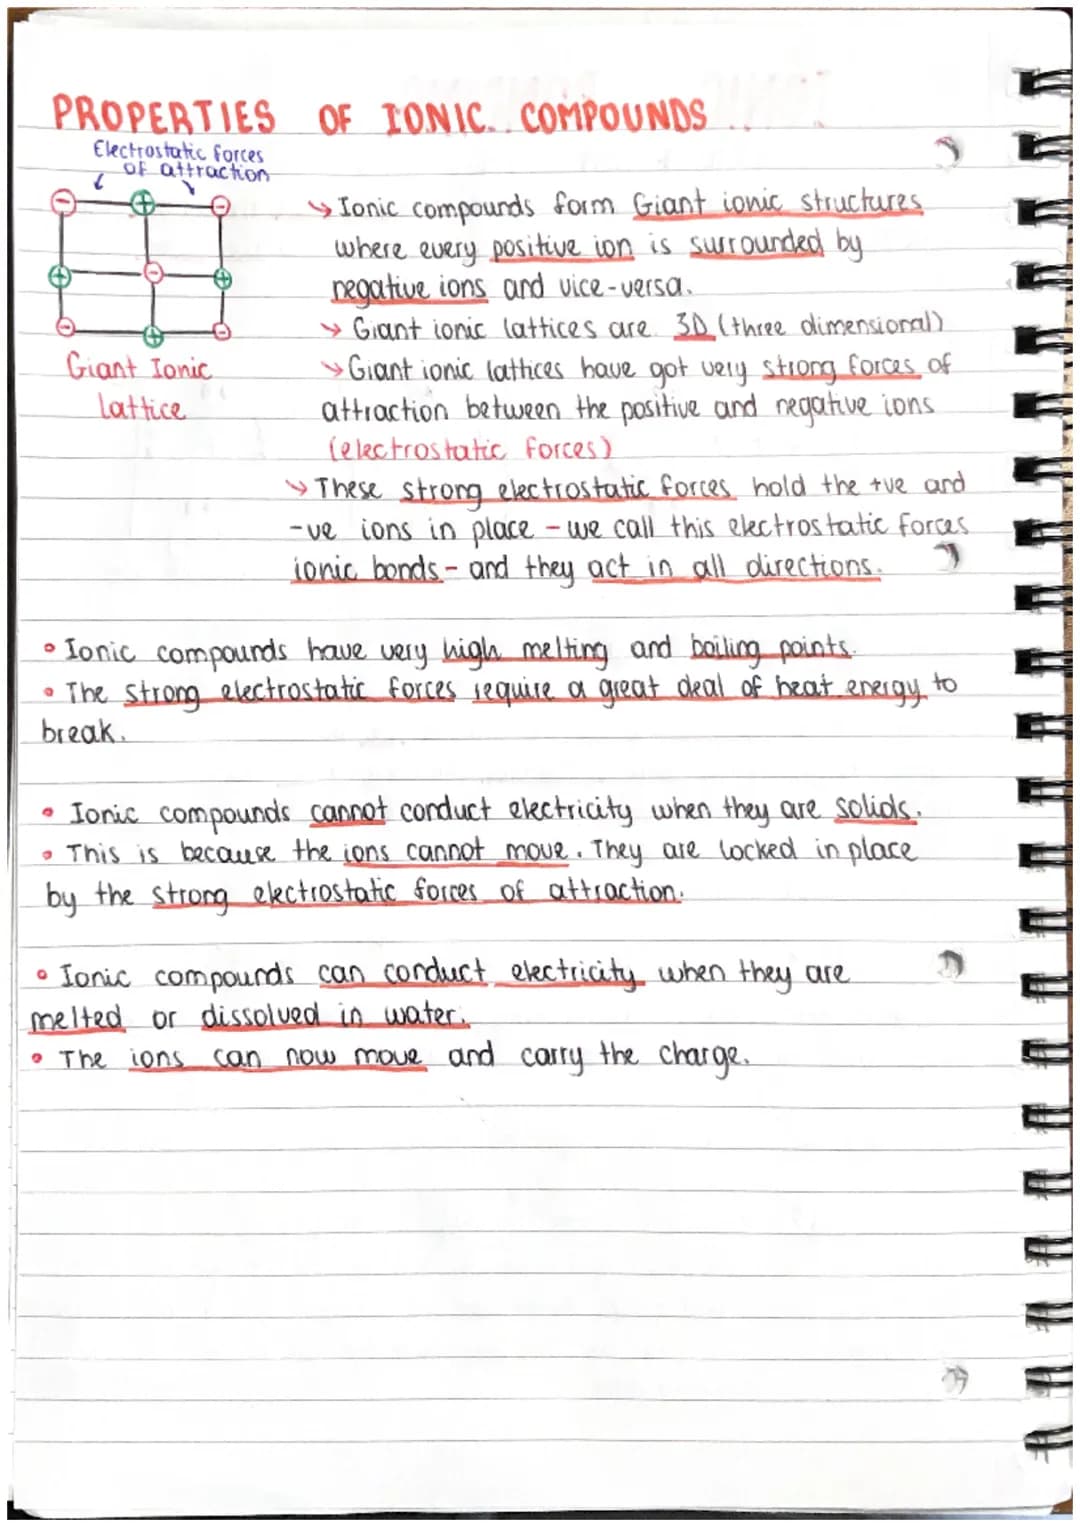 PROPERTIES OF IONIC COMPOUNDS
Electrostatic forces
of attraction
- + -
+ - +
- + -
Giant Ionic
lattice
↘ Ionic compounds form Giant ionic structures
where every positive ion is surrounded by
negative ions and vice-versa.
↘ Giant ionic lattices are 3D (three dimensional)
↘ Giant ionic lattices have got very strong forces of
attraction between the positive and negative ions
(electrostatic forces)
↘ These strong electrostatic forces hold the +ve and
-ve ions in place - we call this electrostatic forces
ionic bonds - and they act in all directions.
• Ionic compounds have very high melting and boiling points.
• The strong electrostatic forces require a great deal of heat energy to
break.
• Ionic compounds cannot conduct electricity when they are solids.
• This is because the ions cannot move. They are locked in place
by the strong electrostatic forces of attraction.
• Ionic compounds can conduct electricity when they are
melted or dissolved in water.
• The ions can now move and carry the charge.